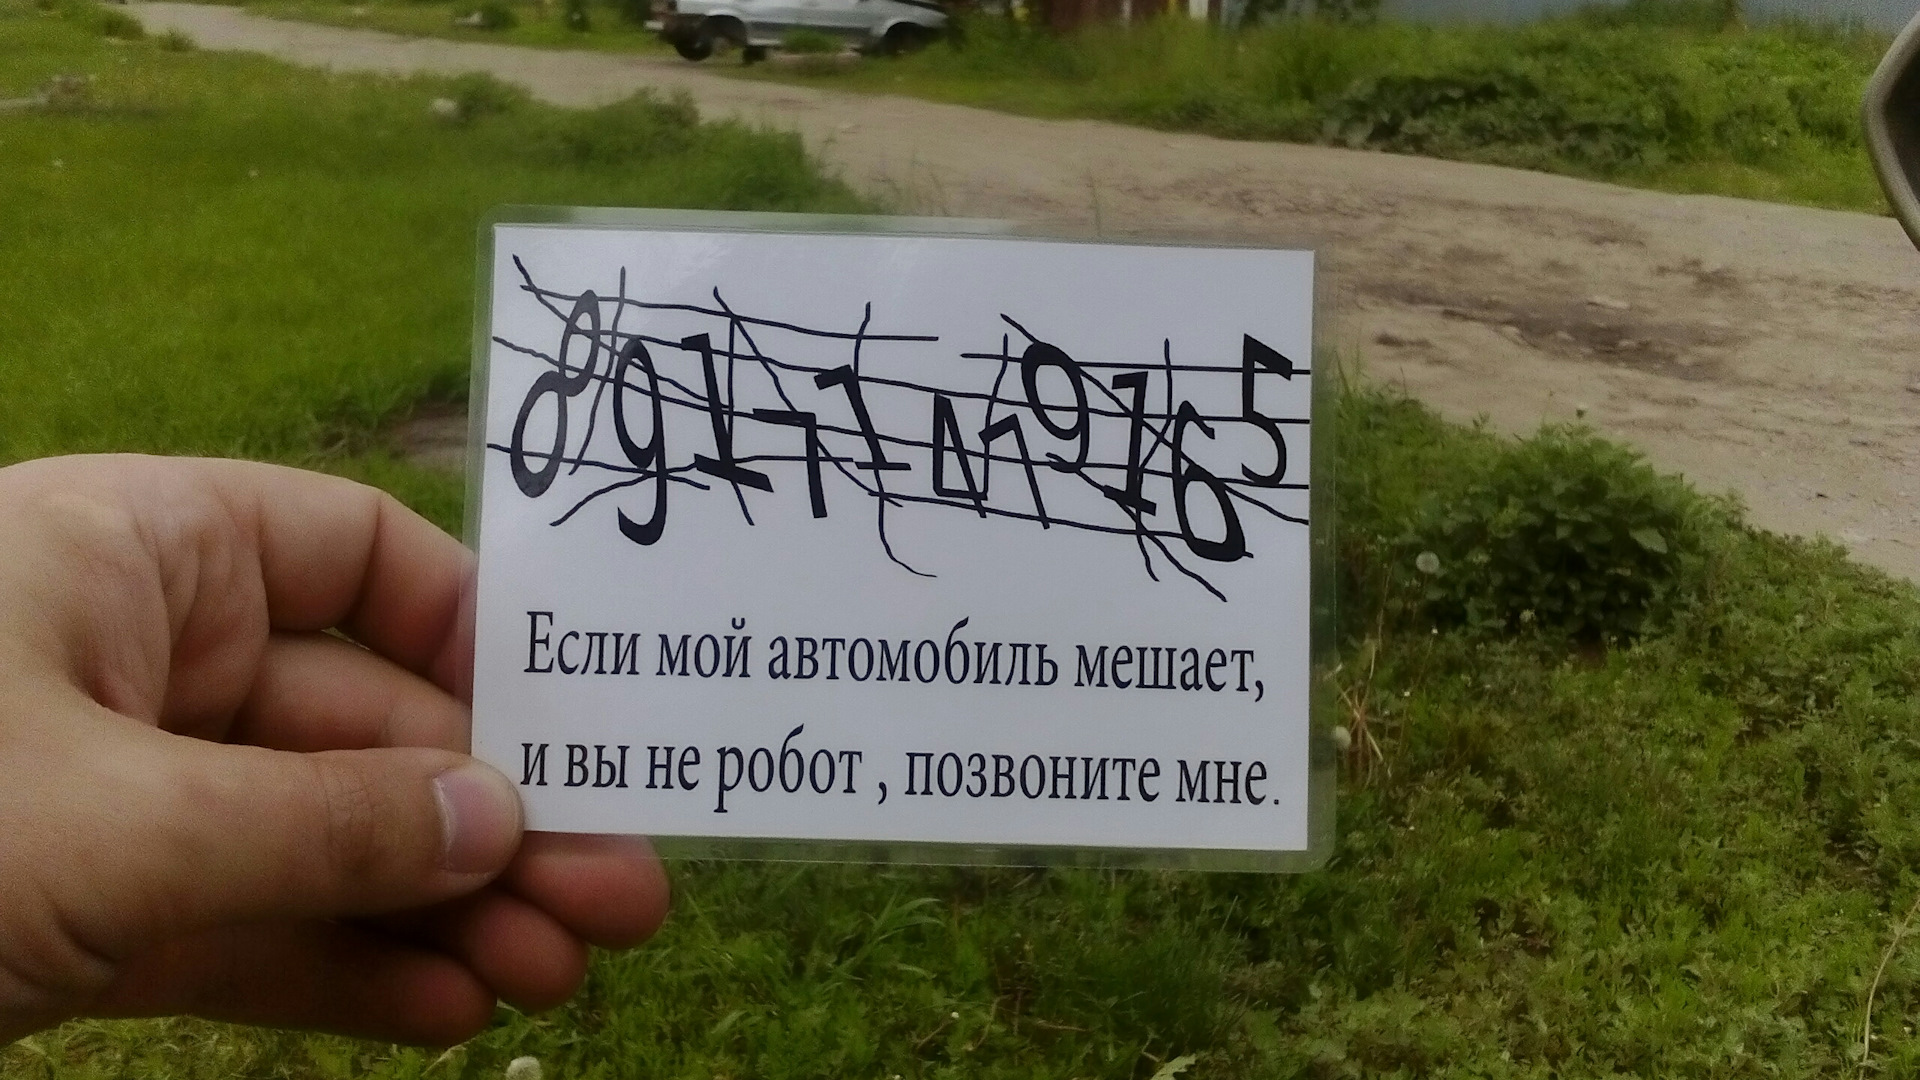 89171479165
Если мой автомобиль мешает,
и вы не робот , позвоните мне.